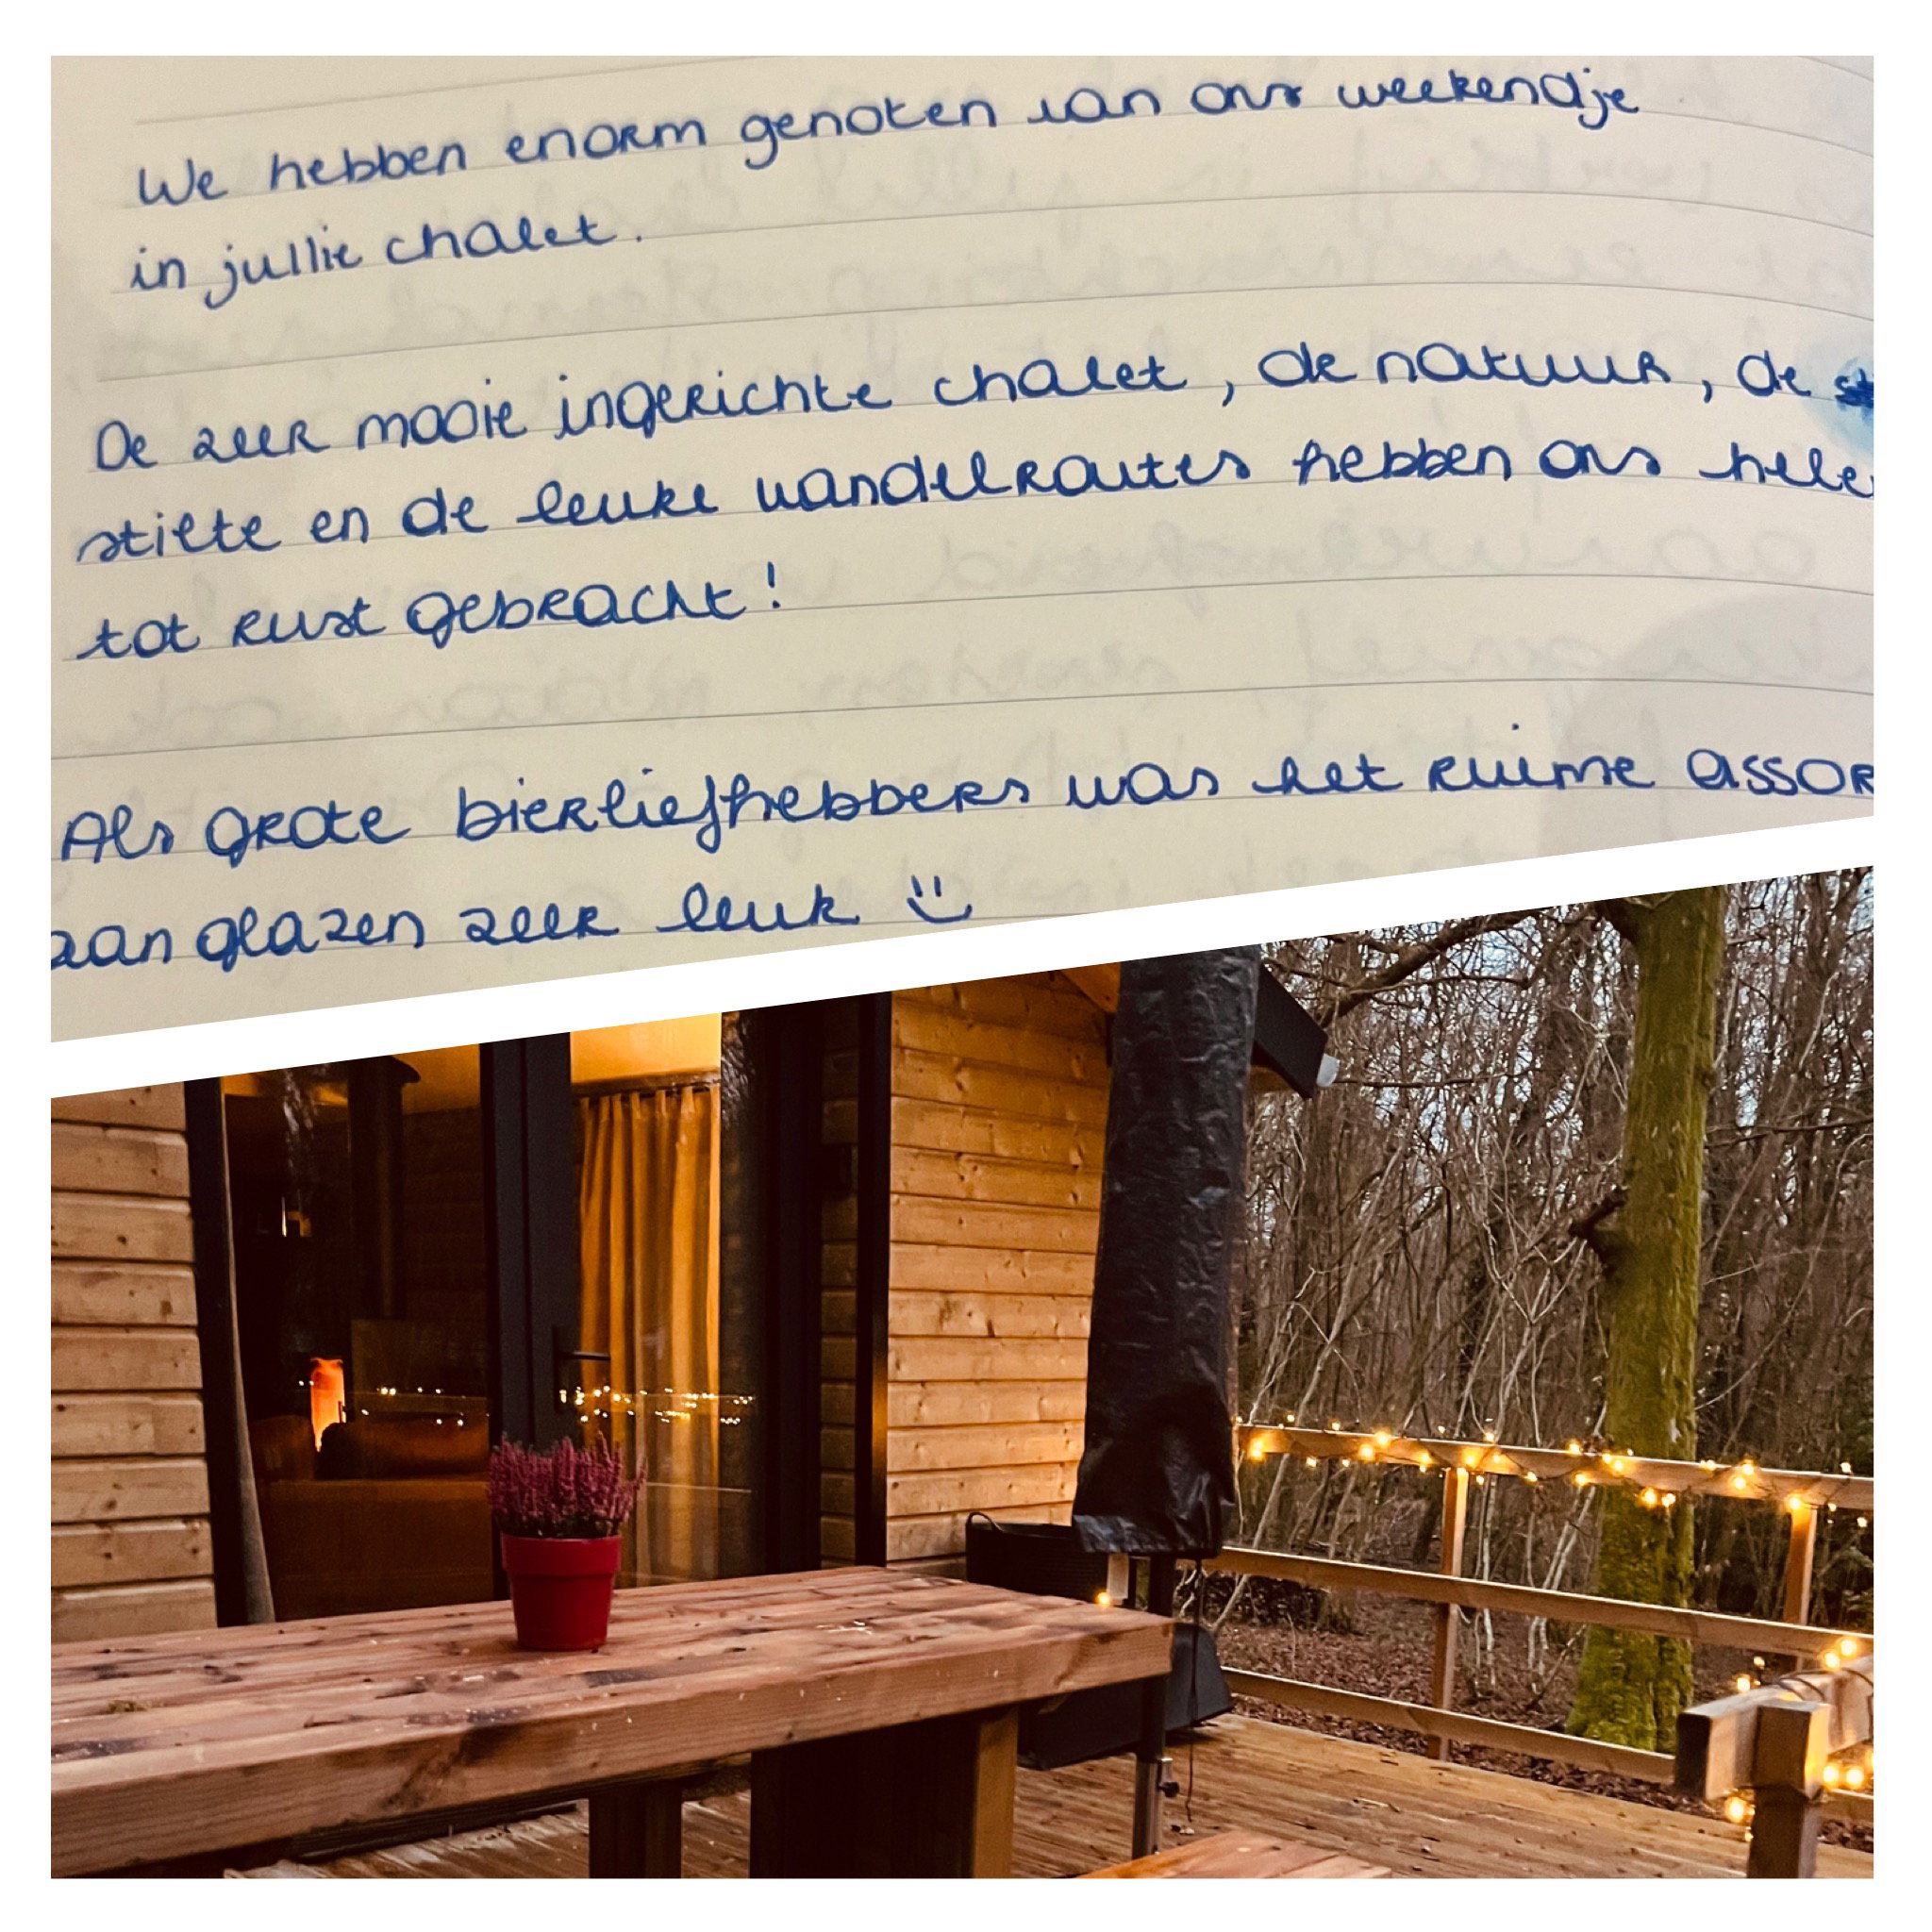 We hebben enorm genoten van ons weekendje
in jullie chalet.
De zeer mooie ingerichte chalet, de natuur, de
stilte en de leuke wandelroutes hebben ons hele
tot rust gebracht!
Als grote bierliefhebbers was het ruime assor
aan glazen zeer leuk